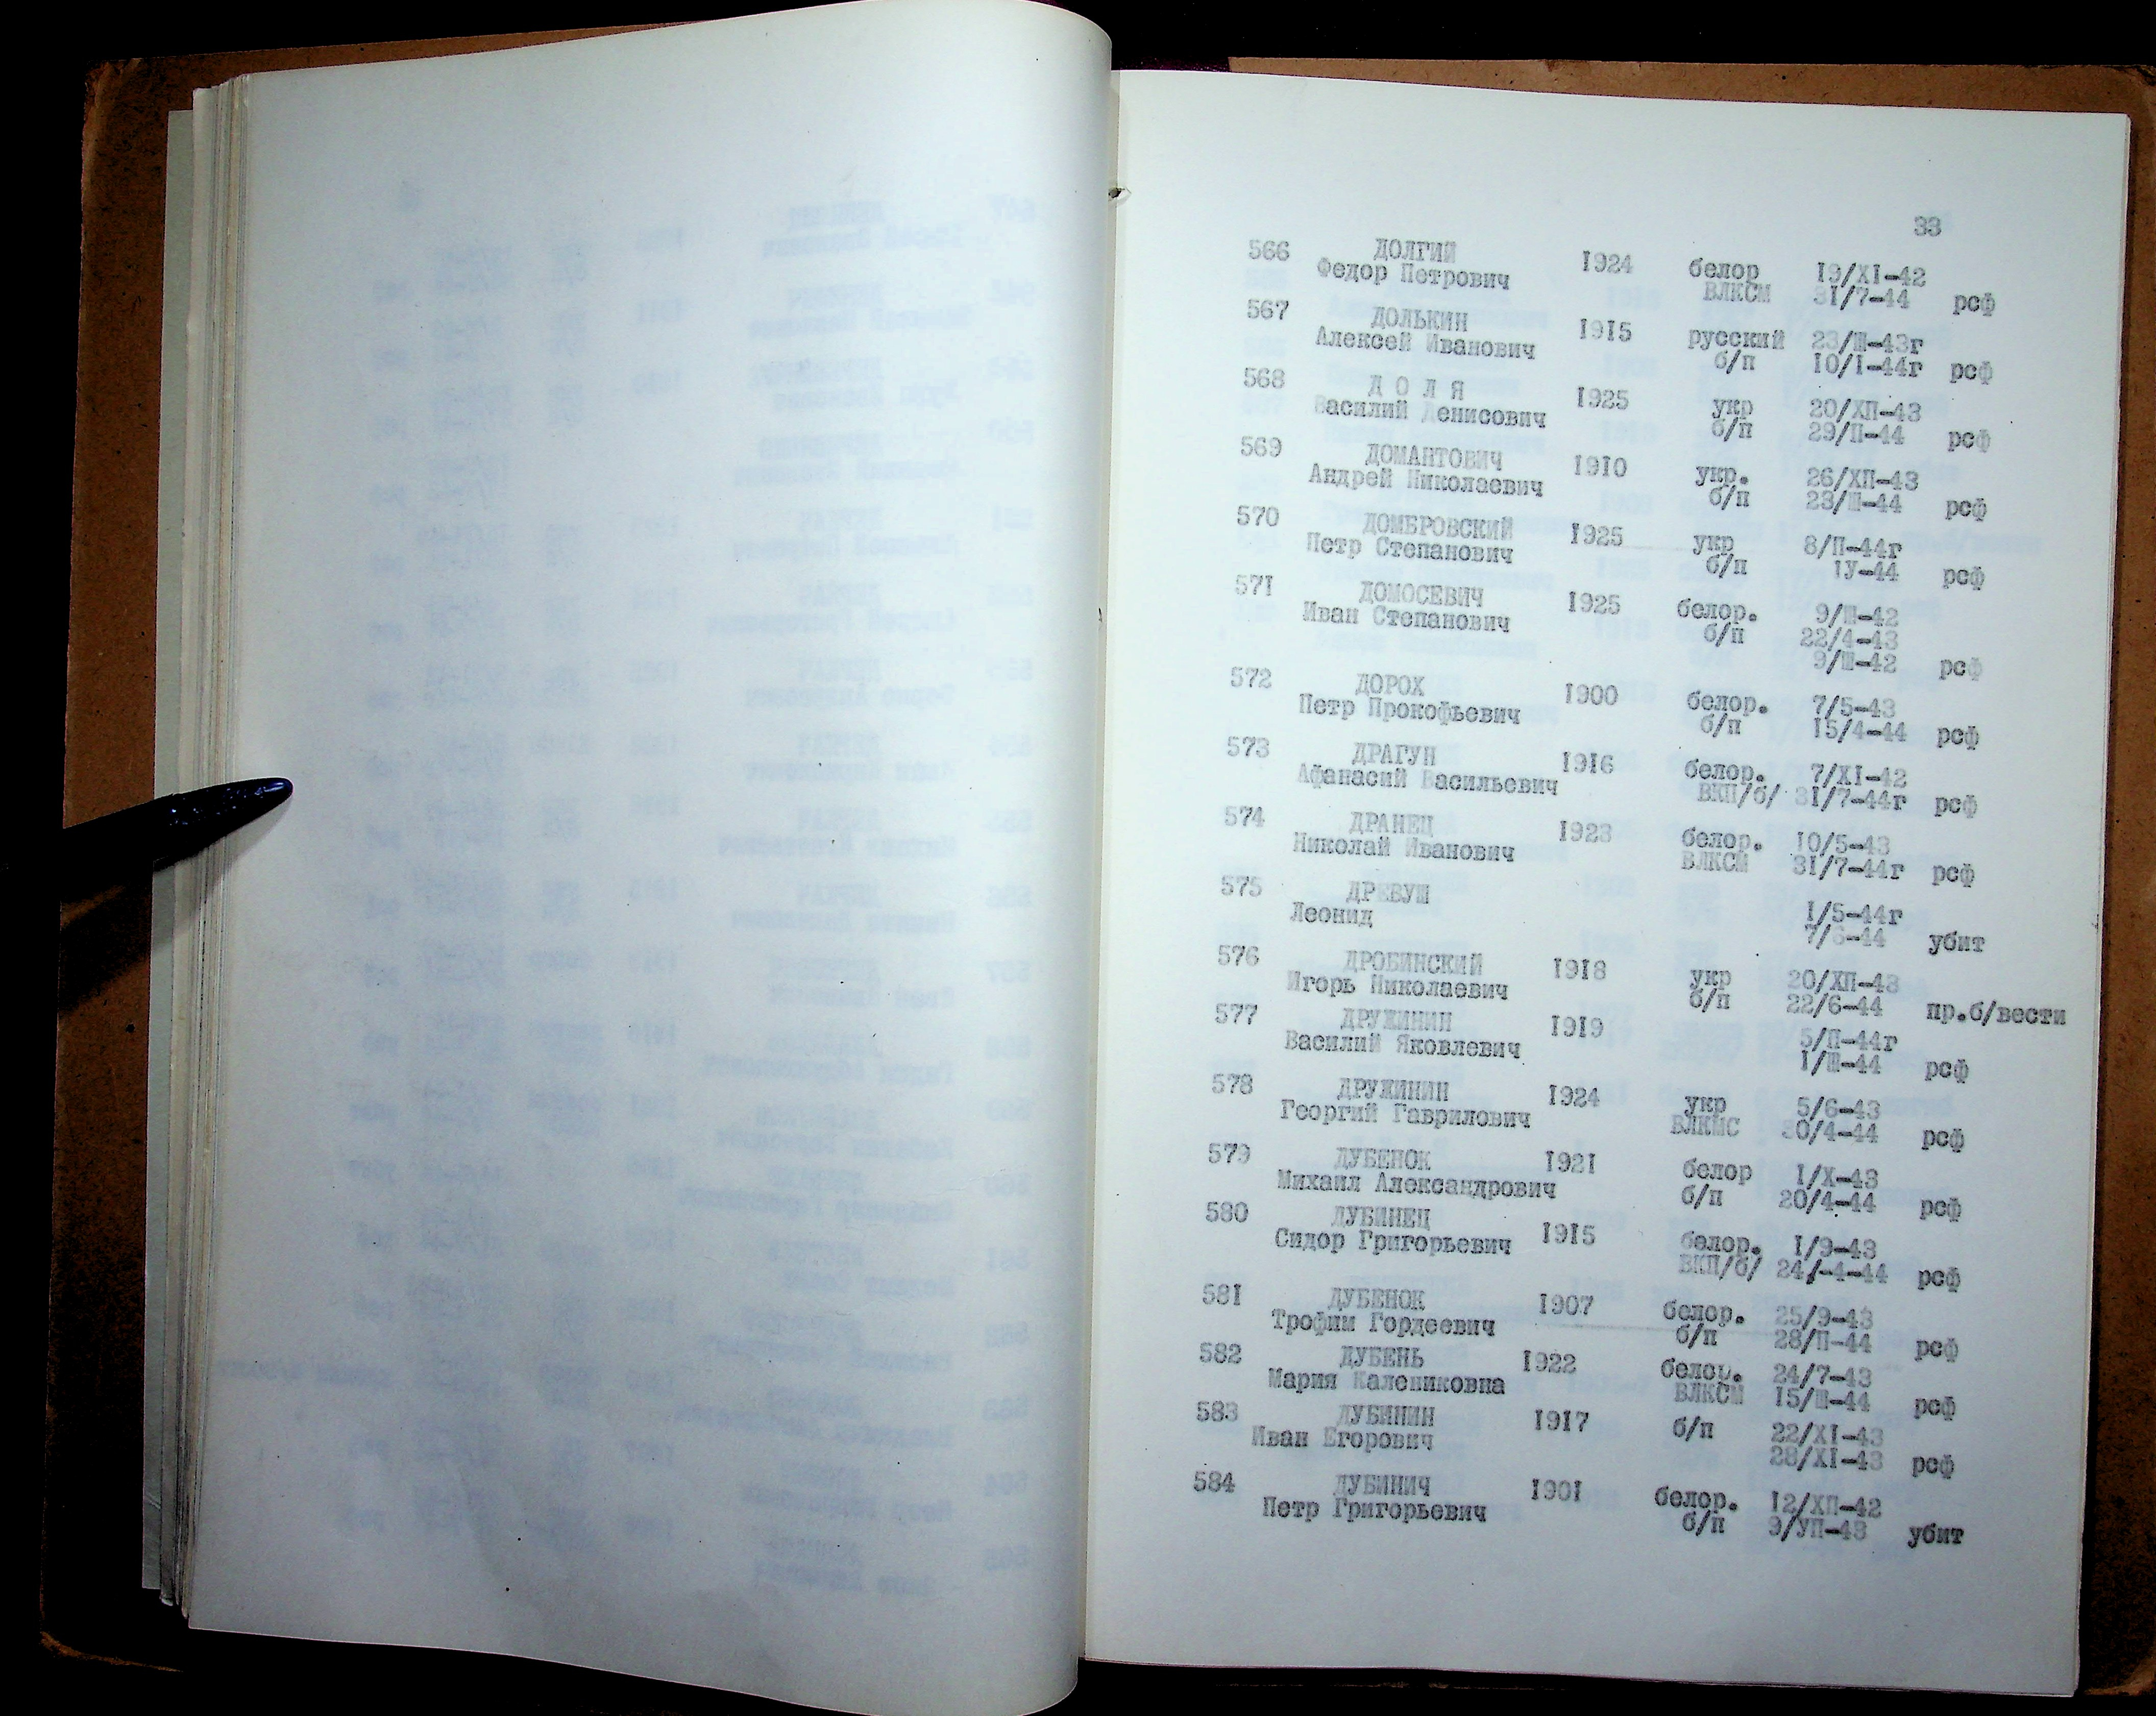 33
566 ДОЛГИЙ 1924 белор 19/XI-42
Федор Петрович ВЛКСМ 31/7-44 рсф
567 ДОЛЬКИН 1915 русский 23/Ш-43г
Алексей Иванович б/п 10/I-44г рсф
568 Д О Л Я 1925 укр 20/ХП-43
Василий Денисович б/п 29/П-44 рсф
569 ДОМАНТОВИЧ 1910 укр. 26/ХП-43
Андрей Николаевич б/п 23/Ш-44 рсф
570 ДОМБРОВСКИЙ 1925 укр 8/П-44г
Петр Степанович б/п IУ-44 рсф
571 ДОМОСЕВИЧ 1925 белор. 9/Ш-42
Иван Степанович б/п 22/4-43
9/Ш-42 рсф
572 ДОРОХ 1900 белор. 7/5-43
Петр Прокофьевич б/п 15/4-44 рсф
573 ДРАГУН 1916 белор. 7/XI-42
Афанасий Васильевич ВКП/б/ 31/7-44г рсф
574 ДРАНЕЦ 1923 белор. 10/5-43
Николай Иванович ВЛКСМ 31/7-44г рсф
575 ДРЕВУШ 1/5-44г
Леонид 7/6-44 убит
576 ДРОБИНСКИЙ 1918 укр 20/ХП-43
Игорь Николаевич б/п 22/6-44 пр.б/вести
577 ДРУЖИНИН 1919 5/П-44г
Василий Яковлевич 1/Ш-44 рсф
578 ДРУЖИНИН 1924 укр 5/6-43
Георгий Гаврилович ВЛКМС 30/4-44 рсф
579 ДУБЕНОК 1921 белор 1/X-43
Михаил Александрович б/п 20/4-44 рсф
580 ДУБИНЕЦ 1915 белор. 1/9-43
Сидор Григорьевич ВКП/б/ 24/-4-44 рсф
581 ДУБЕНОК 1907 белор. 25/9-43
Трофим Гордеевич б/п 28/П-44 рсф
582 ДУБЕНЬ 1922 белор. 24/7-43
Мария Калениковна ВЛКСМ 15/Ш-44 рсф
583 ДУБИНИН 1917 б/п 22/XI-43
Иван Егорович 28/XI-43 рсф
584 ДУБИНИЧ 1901 белор. 12/ХП-42
Петр Григорьевич б/п 9/УП-43 убит